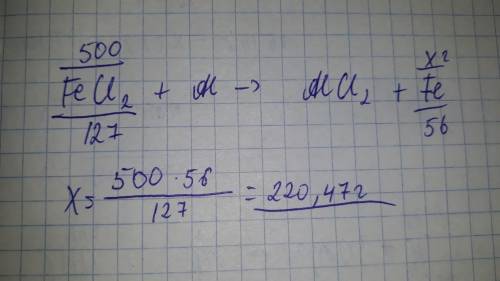 500 x г
FeCl₂ + Al -> AlCl₂ + Fe
127 56
X = 500 · 56 / 127 = 220,47 г